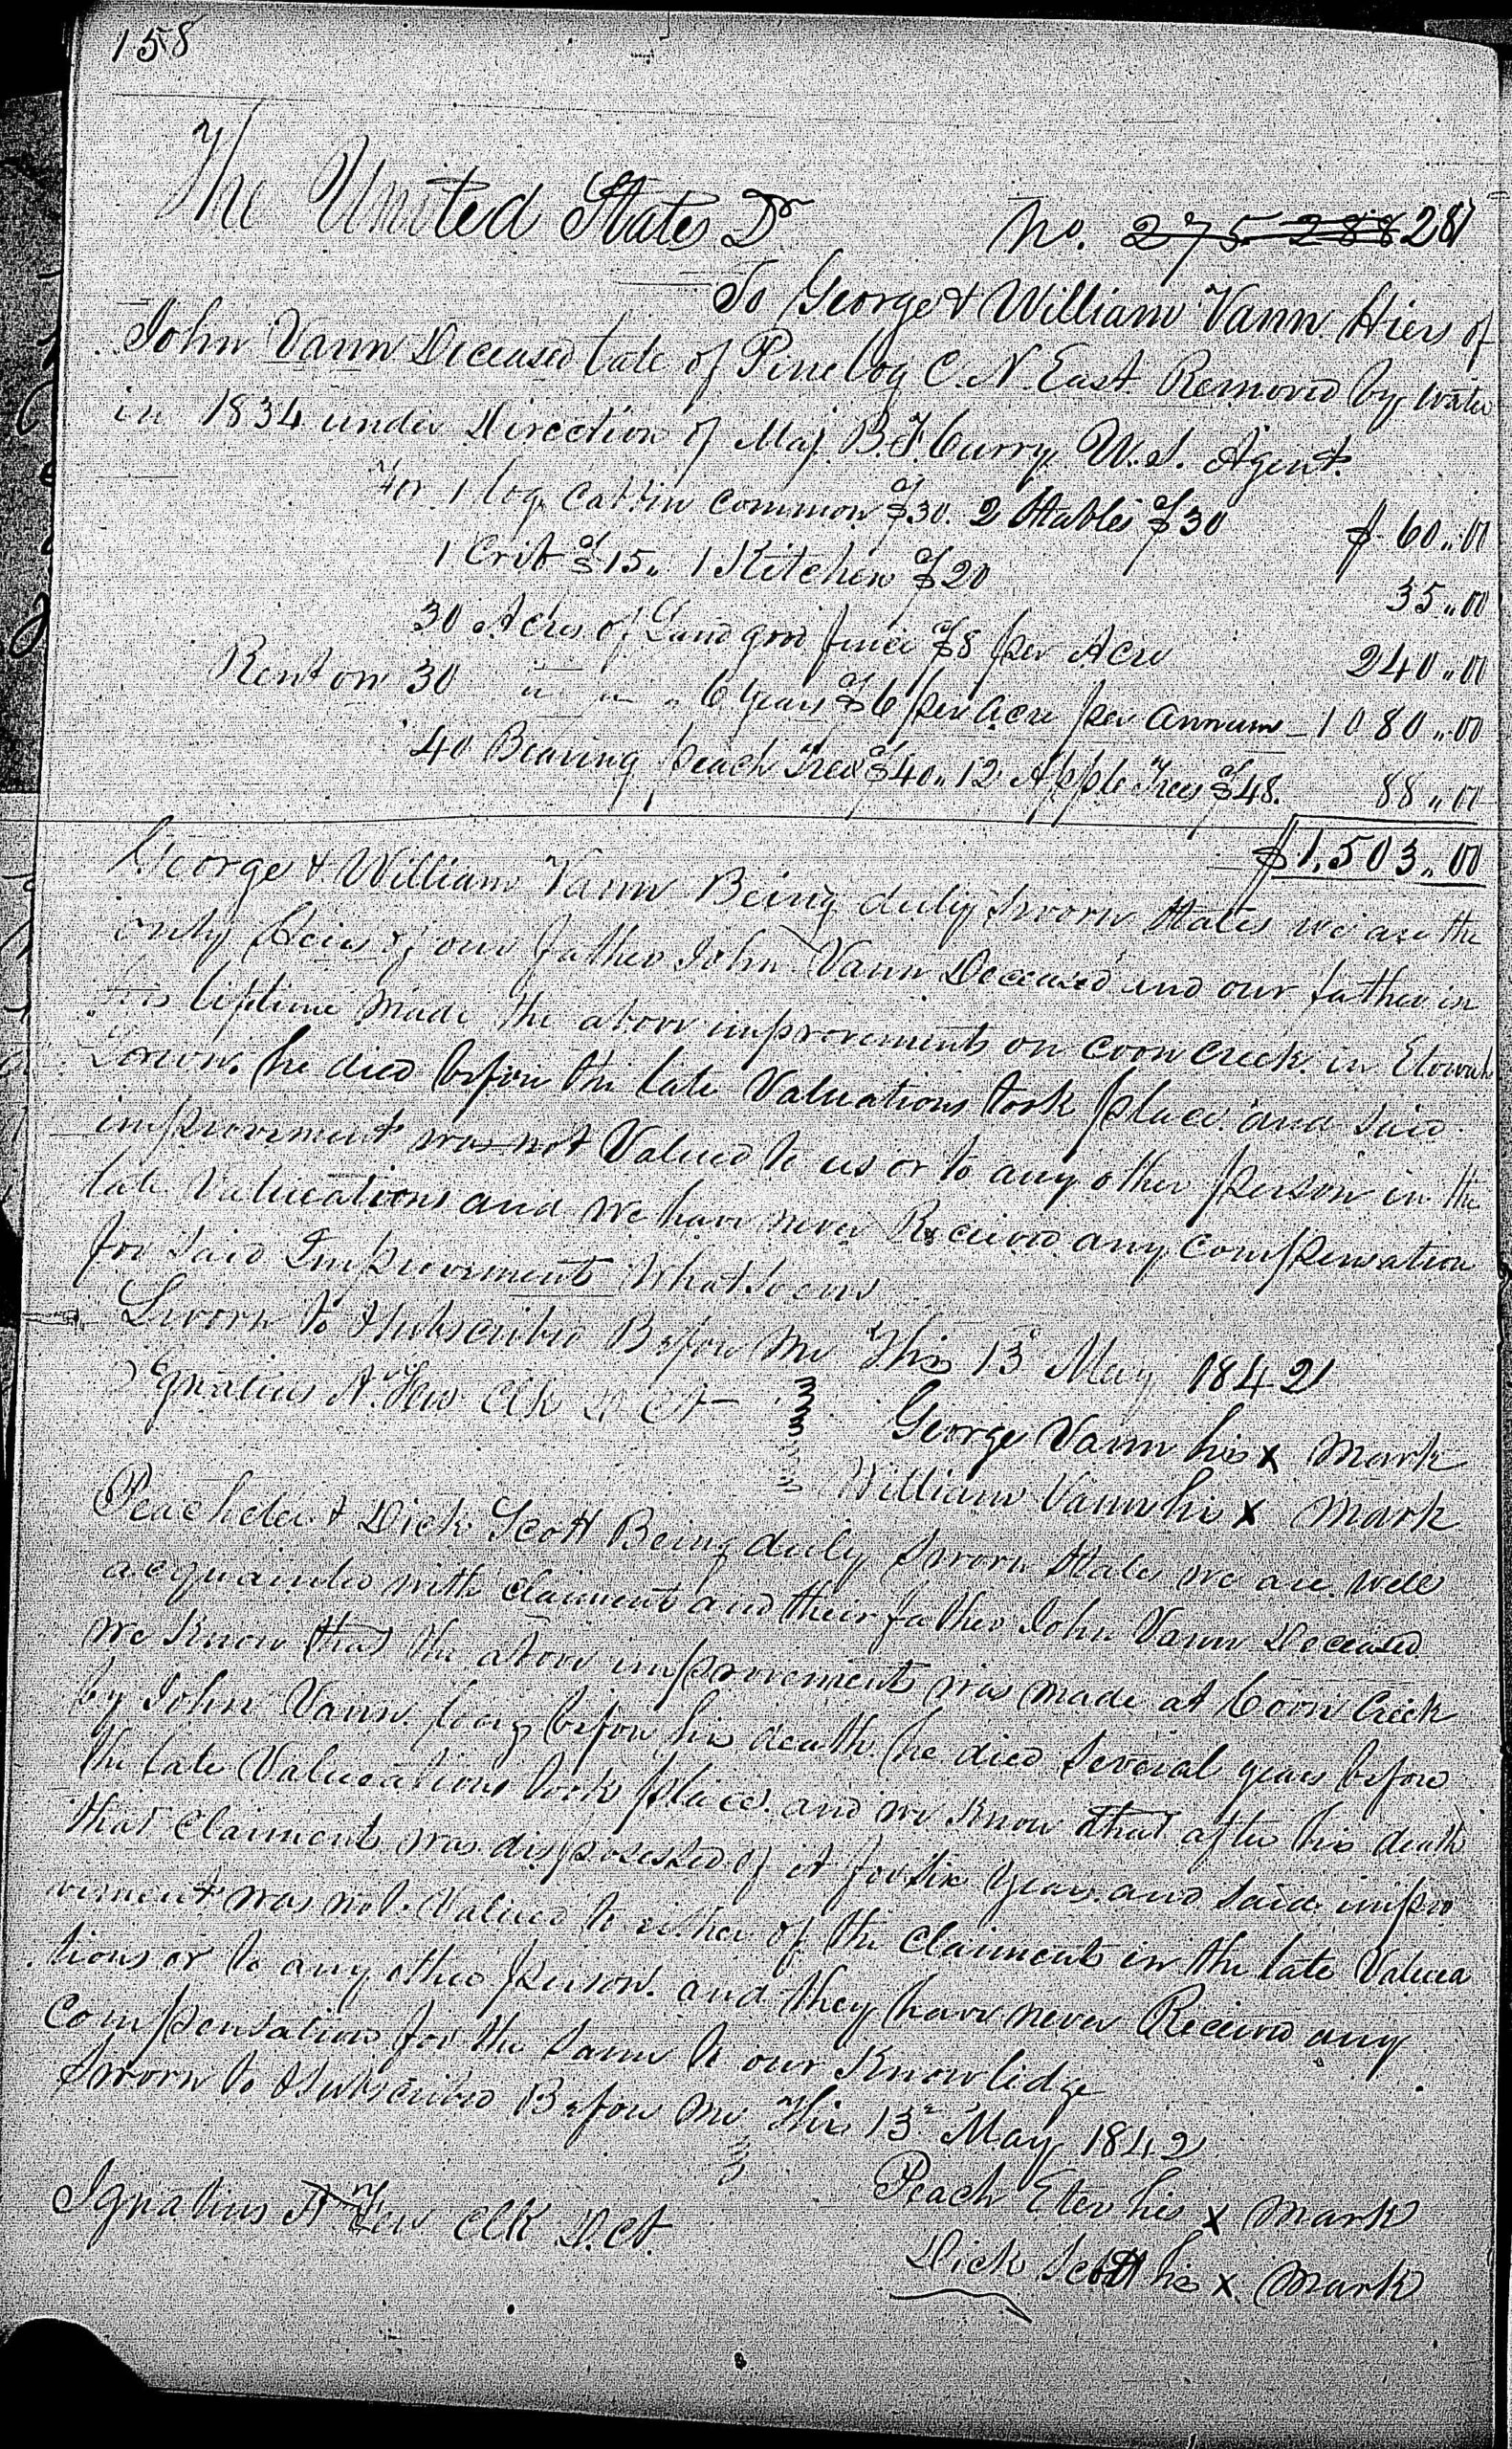 158
The United States Dr No. 275 288 281
To George & William Vann Hiers of
John Vann Deceased late of Pine log C. N. East Removed by water
in 1834 under Direction of Maj. B. F. Curry U. S. Agent.
For 1 log Cabbin common $30. 2 Stables $30 $ 60..00
1 Crib $15.. 1 Kitchen $20 35..00
30 Acres of Land good fence $8 per Acre 240..00
Rent on 30 " " " 6 years $6 per Acre per Annum 1080..00
40 Bearing peach Trees $40.. 12 Apple Trees $48. 88..00
$1,503..00
George & William Vann Being duly sworn States we are the
only Heirs of our father John Vann Deceased and our father in
his liftime made the above improvements on Coon Creek in Etowah
he died before the late Valuations took place and said
improvement was not Valued to us or to any other person in the
late Valuations and we have never Received any compensation
for said Improvements Whatsoever
Sworn to & Subscribed Before Me This 13 May 1842
Ignatius A. Few Clk D Ct
George Vann his x mark
William Vann his x mark
Peacheter & Dick Scott Being duly sworn States we are well
acquainted with Claiment and their father John Vann Deceased
we know that the above improvements was made at Coon Creek
by John Vann long before his death he died several years before
the late Valuations took place and we know that after his death
that Claiments was dispossessed of it for six years and said impro
vement was not Valued to either of the Claiments in the late Valua
tions or to any other person. and they have never Received any
Compensation for the same to our Knowledge
Sworn to & Subscribed Before Me This 13 May 1842
Peach Eter his x mark
Ignatius A Few Clk D. Ct.
Dick Scott his x mark